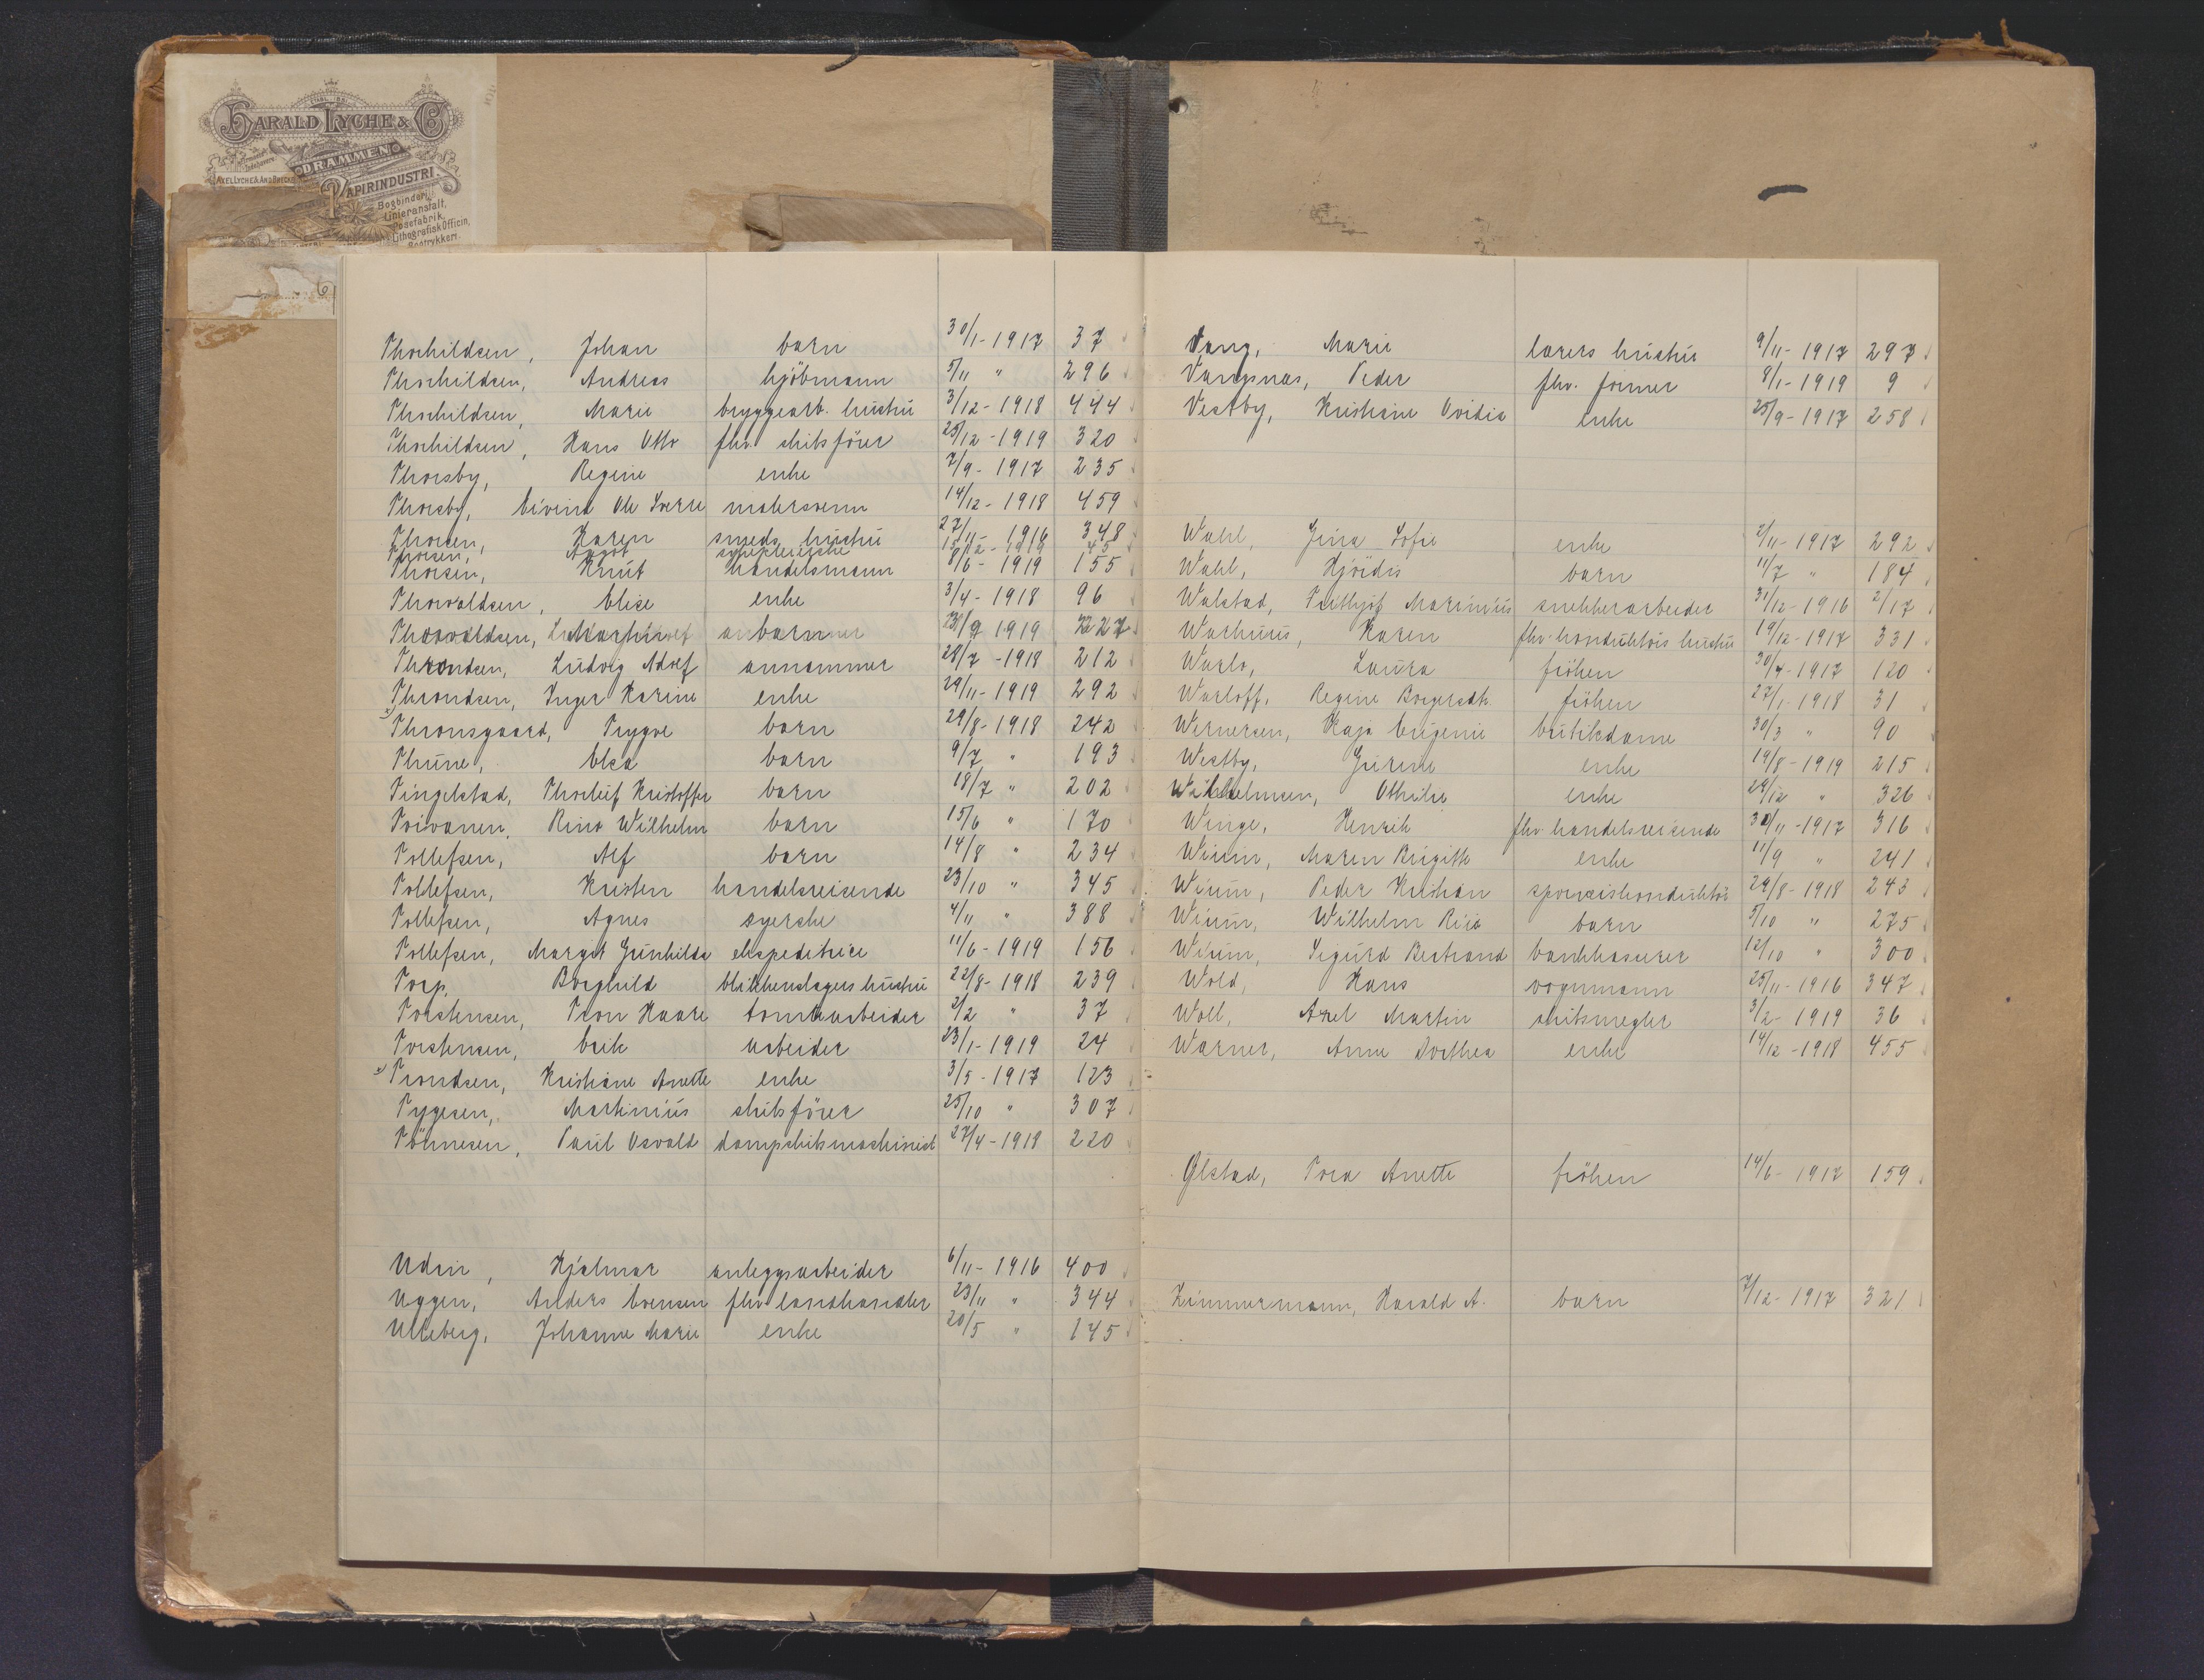 HARALD LYCHE & Co
DRAMMEN
AXEL LYCHE & AND BRECKE
PAPIRINDUSTRI.
Bogbinderi,
Linieranstalt,
Posefabrik,
Lithografisk Officin,
Bogtrykkeri
Thorkildsen, Johan barn 30/1-1917 37
Thorkildsen, Andreas kjöbmann 5/11 " 296
Thorkildsen, Marie bryggearb. hustru 3/12-1918 444
Thorkildsen, Hans Otto fhv. skibsförer 25/12-1919 320
Thorsby, Regine enke 7/9-1917 235
Thorsby, Eivind Ole Sverre malersvenn 14/12-1918 459
Thorsen, Karen smeds hustru 27/11-1916 348
Thorsen, Aagot 45
Thorsen, Knut handelsmann 8/6-1919 155
Thorvaldsen, Elise enke 3/4-1918 96
Thorvaldsen, barn 1919 227
Throndsen, Ludvig Adolf annammer 28/7-1918 212
Throndsen, Inger Karine enke 29/11-1919 292
Thronsgaard, Trygve barn 29/8-1918 242
Thune, Elsa barn 9/7 " 193
Tingelstad, Thorleif Kristoffer barn 18/7 " 202
Toivonen, Rino Wilhelm barn 15/6 " 170
Tollefsen, Alf barn 14/8 " 234
Tollefsen, Kristen handelsreisende 23/10 " 345
Tollefsen, Agnes syerske 4/11 " 388
Tollefsen, Margit Gunhilda ekspeditrice 11/6-1919 156
Torp, Borghild blikkenslagers hustru 22/8-1918 239
Torstensen, Tron Kaare tomtearbeider 2/2 " 37
Torstensen, Erik arbeider 23/1-1919 24
Trondsen, Kristiane Anette enke 3/5-1917 123
Tygesen, Martinius skibsförer 25/10 " 307
Tönnesen, Paul Osvald dampskibsmaskinist 27/4-1919 220
Udin, Hjalmar anleggsarbeider 6/11-1916 400
Uggen, Anders Evensen fhv. landhandler 23/11 " 344
Ulleberg, Johanne Marie enke 20/5 " 145
Vang, Marie lærers hustru 9/11-1917 297
Vangsnæs, Peder fhv. former 8/1-1919 9
Vestby, Kristiane Ovidia enke 25/9-1917 258
Wahl, Gina Sofie enke 2/11-1917 292
Wahl, Hjördis barn 11/7 " 184
Walstad, Frithjof Marinius snekkerarbeider 31/12-1916 2/17
Warhuus, Karen fhv. konduktörs hustru 19/12-1917 331
Warlo, Laura fröken 30/4-1917 120
Warloff, Regine Borgersdtr. fröken 27/1-1918 31
Wernersen, Kaja Eugenie butikdame 30/3 " 90
Westby, Gurine enke 14/8-1919 215
Wilhelmsen, Othilie enke 29/12 " 326
Winge, Henrik fhv. handelsreisende 30/11-1917 316
Wium, Maren Birgitte enke 11/9 " 241
Wium, Peder Kristian sporveiskonduktör 29/8-1918 243
Wium, Wilhelm barn 5/10 " 275
Wium, Sigurd Bertrand bankkasserer 12/10 " 300
Wold, Hans vognmann 25/11-1916 347
Woll, Axel Martin skibsmegler 3/2-1919 36
Wærner, Anne Dorthea enke 14/12-1918 455
Ølstad, Tora Anette fröken 14/6-1917 159
Zimmermann, Harald A. barn 7/12-1917 321